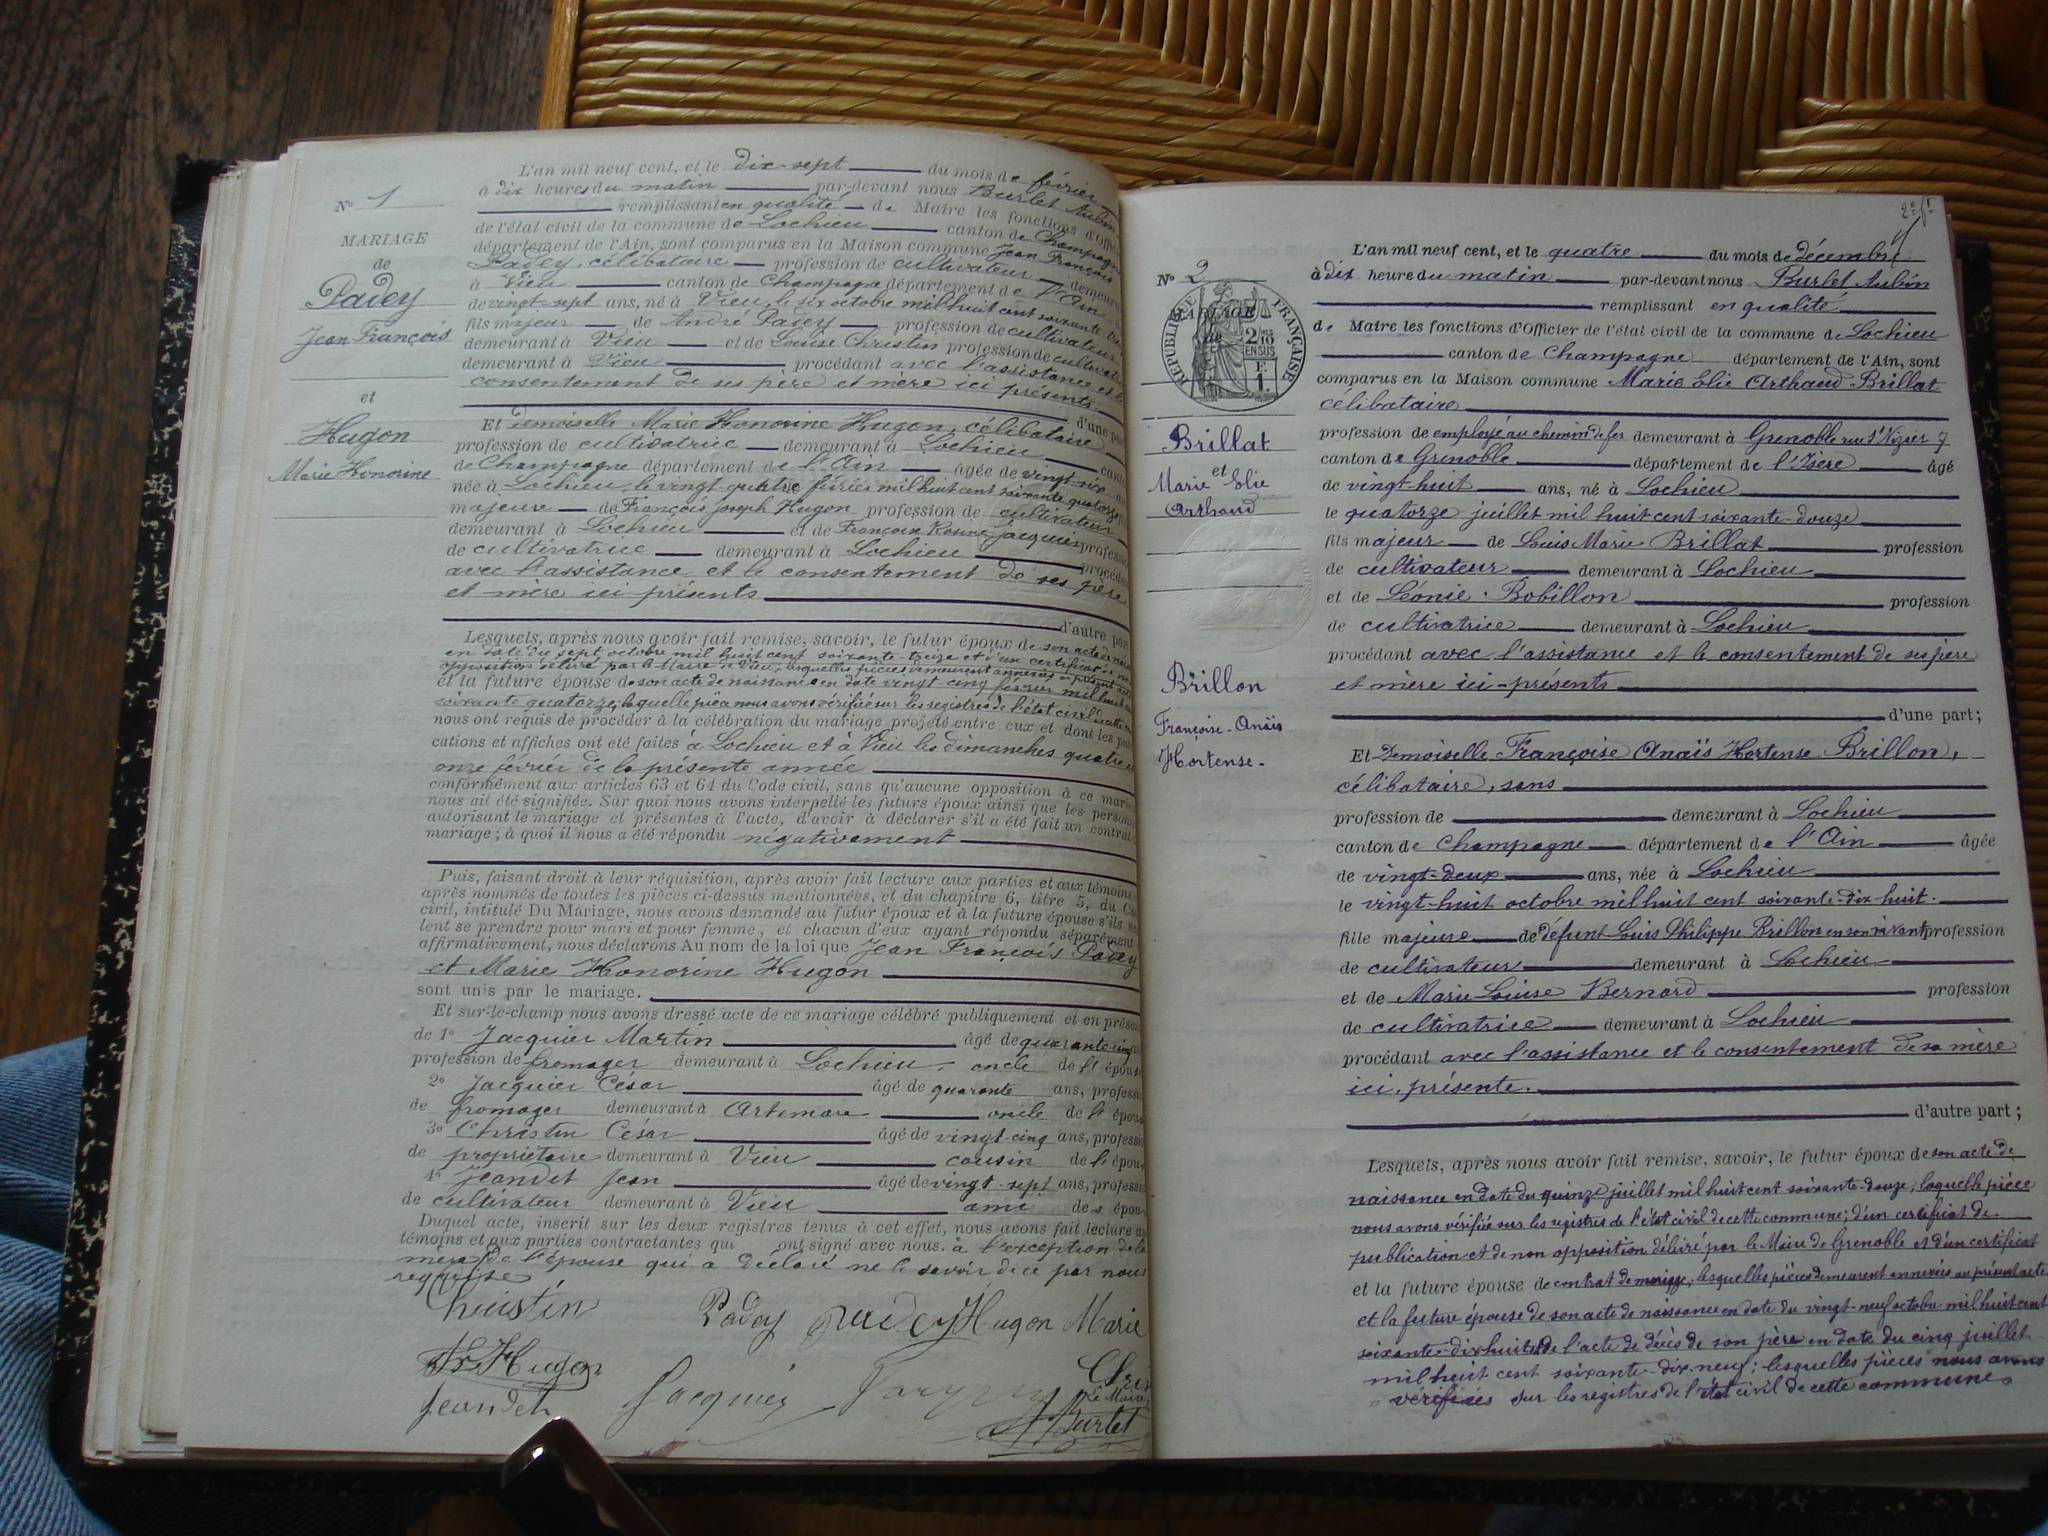 N° 1
MARIAGE
de
Padey
Jean François
et
Hugon
Marie Honorine
L'an mil neuf cent, et le dix-sept du mois de février
à dix heures du matin par-devant nous Burlet Aubin
remplissant en qualité de Maire les fonctions d'Offic
de l'état civil de la commune de Lochieu canton de Champagne
département de l'Ain, sont comparus en la Maison commune Jean François
Padey, célibataire profession de cultivateur
à Vieu canton de Champagne département de l'Ain demeur
de vingt-sept ans, né à Vieu, le six octobre mil huit cent soixante
fils majeur de André Padey profession de cultivateur
demeurant à Vieu et de Louise Christin profession de cultivat
demeurant à Vieu procédant avec l'assistance et le
consentement de ses père et mère ici présents
d'une pa
Et Demoiselle Marie Honorine Hugon, célibataire
profession de cultivatrice demeurant à Lochieu cant
de Champagne département de l'Ain âgée de vingt-six
née à Lochieu, le vingt quatre février mil huit cent soixante quatorze
majeure de François Joseph Hugon profession de cultivateur
demeurant à Lochieu et de Françoise Rosine Jacquier profess
de cultivatrice demeurant à Lochieu procéd
avec l'assistance et le consentement de ses père
et mère ici présents
d'autre part
Lesquels, après nous avoir fait remise, savoir, le futur époux de son acte de
en date du sept octobre mil huit cent soixante-treize et d'un certificat de
opposition délivré par le Maire de Vieu, lesquelles pièces demeurent annexées au présent
et la future épouse de son acte de naissance en date vingt cinq février mil huit
soixante quatorze, laquelle pièce nous avons vérifiée sur les registres de l'état civil de cette
nous ont requis de procéder à la célébration du mariage projeté entre eux et dont les pub
cations et affiches ont été faites à Lochieu et à Vieu les dimanches quatre et
onze février de la présente année
conformément aux articles 63 et 64 du Code civil, sans qu'aucune opposition à ce maria
nous ait été signifiée. Sur quoi nous avons interpellé les futurs époux ainsi que les person
autorisant le mariage et présentes à l'acte, d'avoir à déclarer s'il a été fait un contrat
mariage ; à quoi il nous a été répondu négativement
Puis, faisant droit à leur réquisition, après avoir fait lecture aux parties et aux témoins
après nommés de toutes les pièces ci-dessus mentionnées, et du chapitre 6, titre 5, du C
civil, intitulé Du Mariage, nous avons demandé au futur époux et à la future épouse s'ils
lent se prendre pour mari et pour femme, et chacun d'eux ayant répondu séparément
affirmativement, nous déclarons Au nom de la loi que Jean François Padey
et Marie Honorine Hugon
sont unis par le mariage.
Et sur-le-champ nous avons dressé acte de ce mariage célébré publiquement et en prése
de 1° Jacquier Martin âgé de quarante cinq
profession de fromager demeurant à Lochieu, oncle de l'épous
2° Jacquier César âgé de quarante ans, profess
de fromager demeurant à Artemare oncle de l'épou
3° Christin César âgé de vingt-cinq ans, professi
de propriétaire demeurant à Vieu cousin de l'épou
4° Jeandet Jean âgé de vingt-sept ans, professi
de cultivateur demeurant à Vieu ami des épou
Duquel acte, inscrit sur les deux registres tenus à cet effet, nous avons fait lecture au
témoins et aux parties contractantes qui ont signé avec nous. à l'exception de la
mère de l'épouse qui a déclaré ne le savoir dice par nous
requise
Christin Padey Padey Hugon Marie
Hugon
Jeandet Jacquier Chris
Le Maire
Burlet
2e ft
N° 2
RÉPUBLIQUE FRANÇAISE
MARIAGE
de
2/10 EN SUS
F. 1.
Brillat
et
Marie Elie
Arthaud
Brillon
Françoise-Anaïs
Hortense.
L'an mil neuf cent, et le quatre du mois de décembre
à dix heure du matin par-devant nous Burlet Aubin
remplissant en qualité
de Maire les fonctions d'Officier de l'état civil de la commune de Lochieu
canton de Champagne département de l'Ain, sont
comparus en la Maison commune Marie Elie Arthaud Brillat
célibataire
profession de employé au chemin de fer demeurant à Grenoble rue St Nizier 7
canton de Grenoble département de l'Isère âgé
de vingt-huit ans, né à Lochieu
le quatorze juillet mil huit cent soixante-douze
fils majeur de Louis Marie Brillat profession
de cultivateur demeurant à Lochieu
et de Léonie Bobillon profession
de cultivatrice demeurant à Lochieu
procédant avec l'assistance et le consentement de ses père
et mère ici-présents
d'une part ;
Et Demoiselle Françoise Anaïs Hortense Brillon,
célibataire, sans
profession de demeurant à Lochieu
canton de Champagne département de l'Ain âgée
de vingt-deux ans, née à Lochieu
le vingt-huit octobre mil huit cent soixante-dix-huit
fille majeure de défunt Louis Philippe Brillon en son vivant profession
de cultivateur demeurant à Lochieu
et de Marie Louise Bernard profession
de cultivatrice demeurant à Lochieu
procédant avec l'assistance et le consentement de sa mère
ici, présente.
d'autre part ;
Lesquels, après nous avoir fait remise, savoir, le futur époux de son acte de
naissance en date du quinze juillet mil huit cent soixante-douze, laquelle pièce
nous avons vérifiée sur les registres de l'état civil de cette commune; d'un certificat de
publication et de non opposition délivré par le Maire de Grenoble et d'un certificat
et la future épouse de contrat de mariage, lesquelles pièces demeurent annexées au présent acte
et la future épouse de son acte de naissance en date du vingt-neuf octobre mil huit cent
soixante-dix huit et de l'acte de décès de son père en date du cinq juillet
mil huit cent soixante-dix-neuf; lesquelles pièces nous avons
vérifiées sur les registres de l'état civil de cette commune